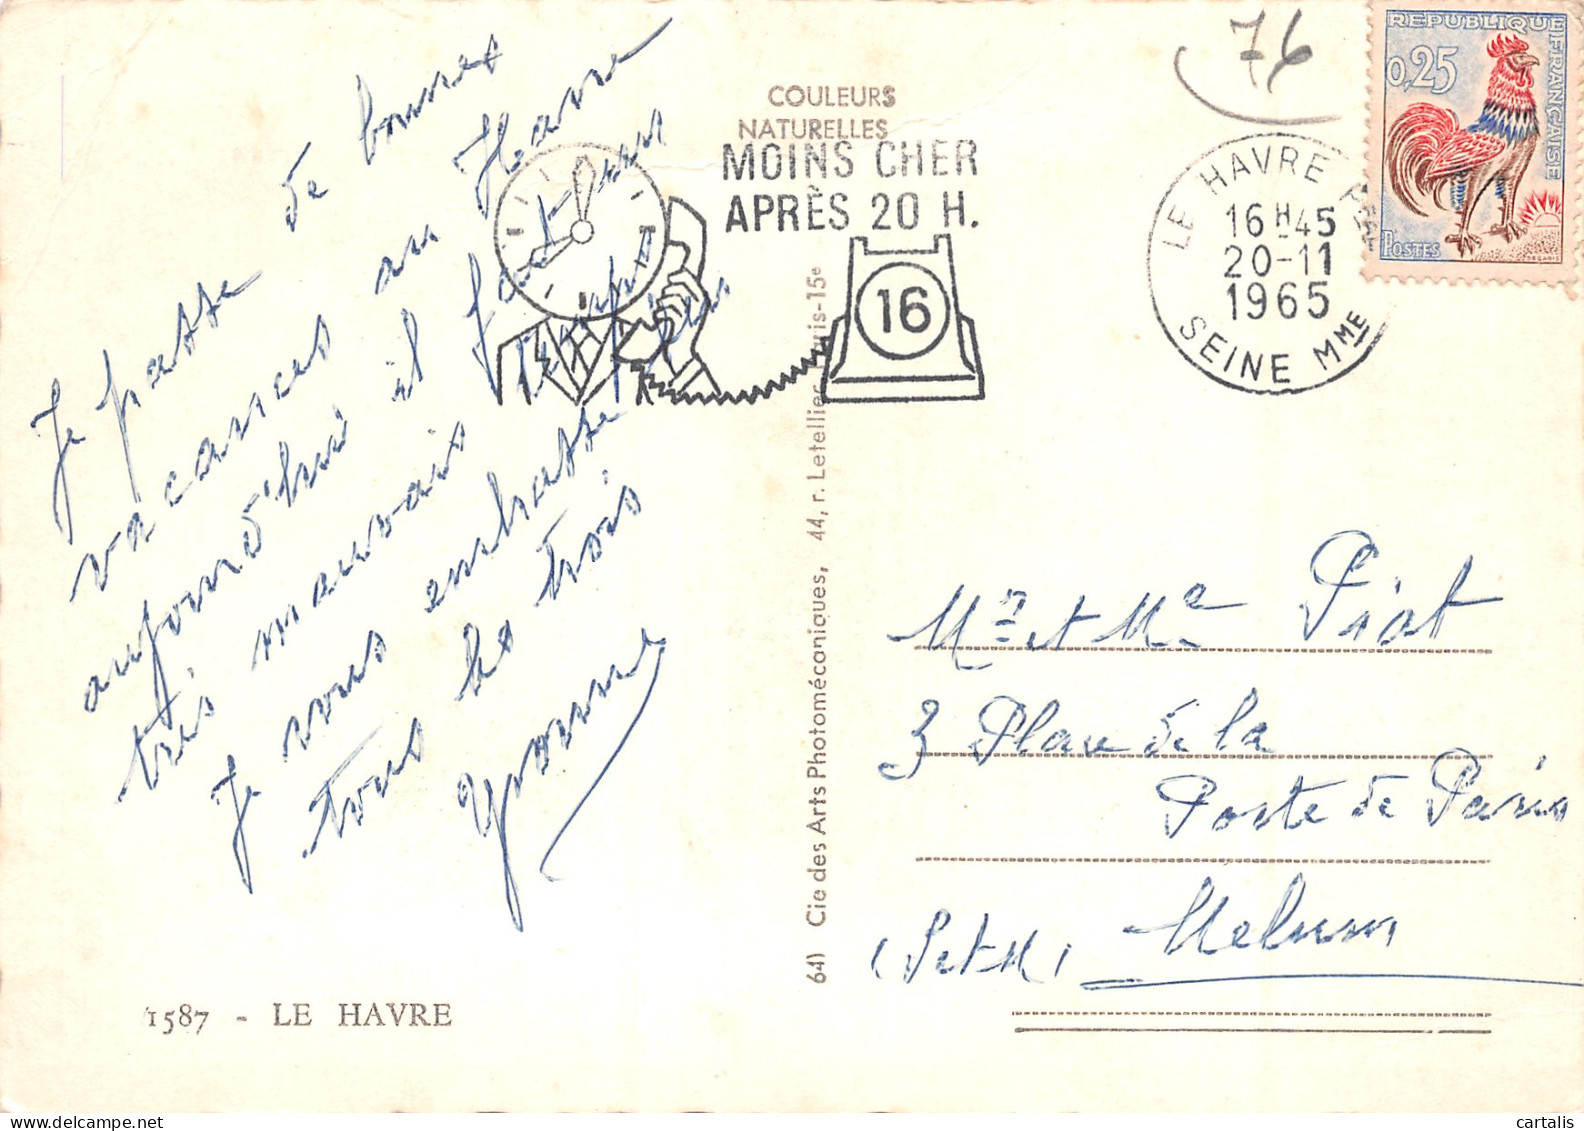 76
COULEURS
NATURELLES
MOINS CHER
APRÈS 20 H.
16
LE HAVRE
16 H 45
20-11
1965
SEINE MME
REPUBLIQUE FRANÇAISE
0,25
POSTES
DECARIS
Je passe de bonnes
vacances au Havre
aujourd'hui il fait un
très mauvais temps
Je vous embrasse bien
tous les trois
Yvonne
1587 - LE HAVRE
641 Cie des Arts Photomécaniques, 44, r. Letellier, Paris-15e
Mr et Me Piat
3 Place de la
Poste de Paris
(S et M) Melun
cartalis